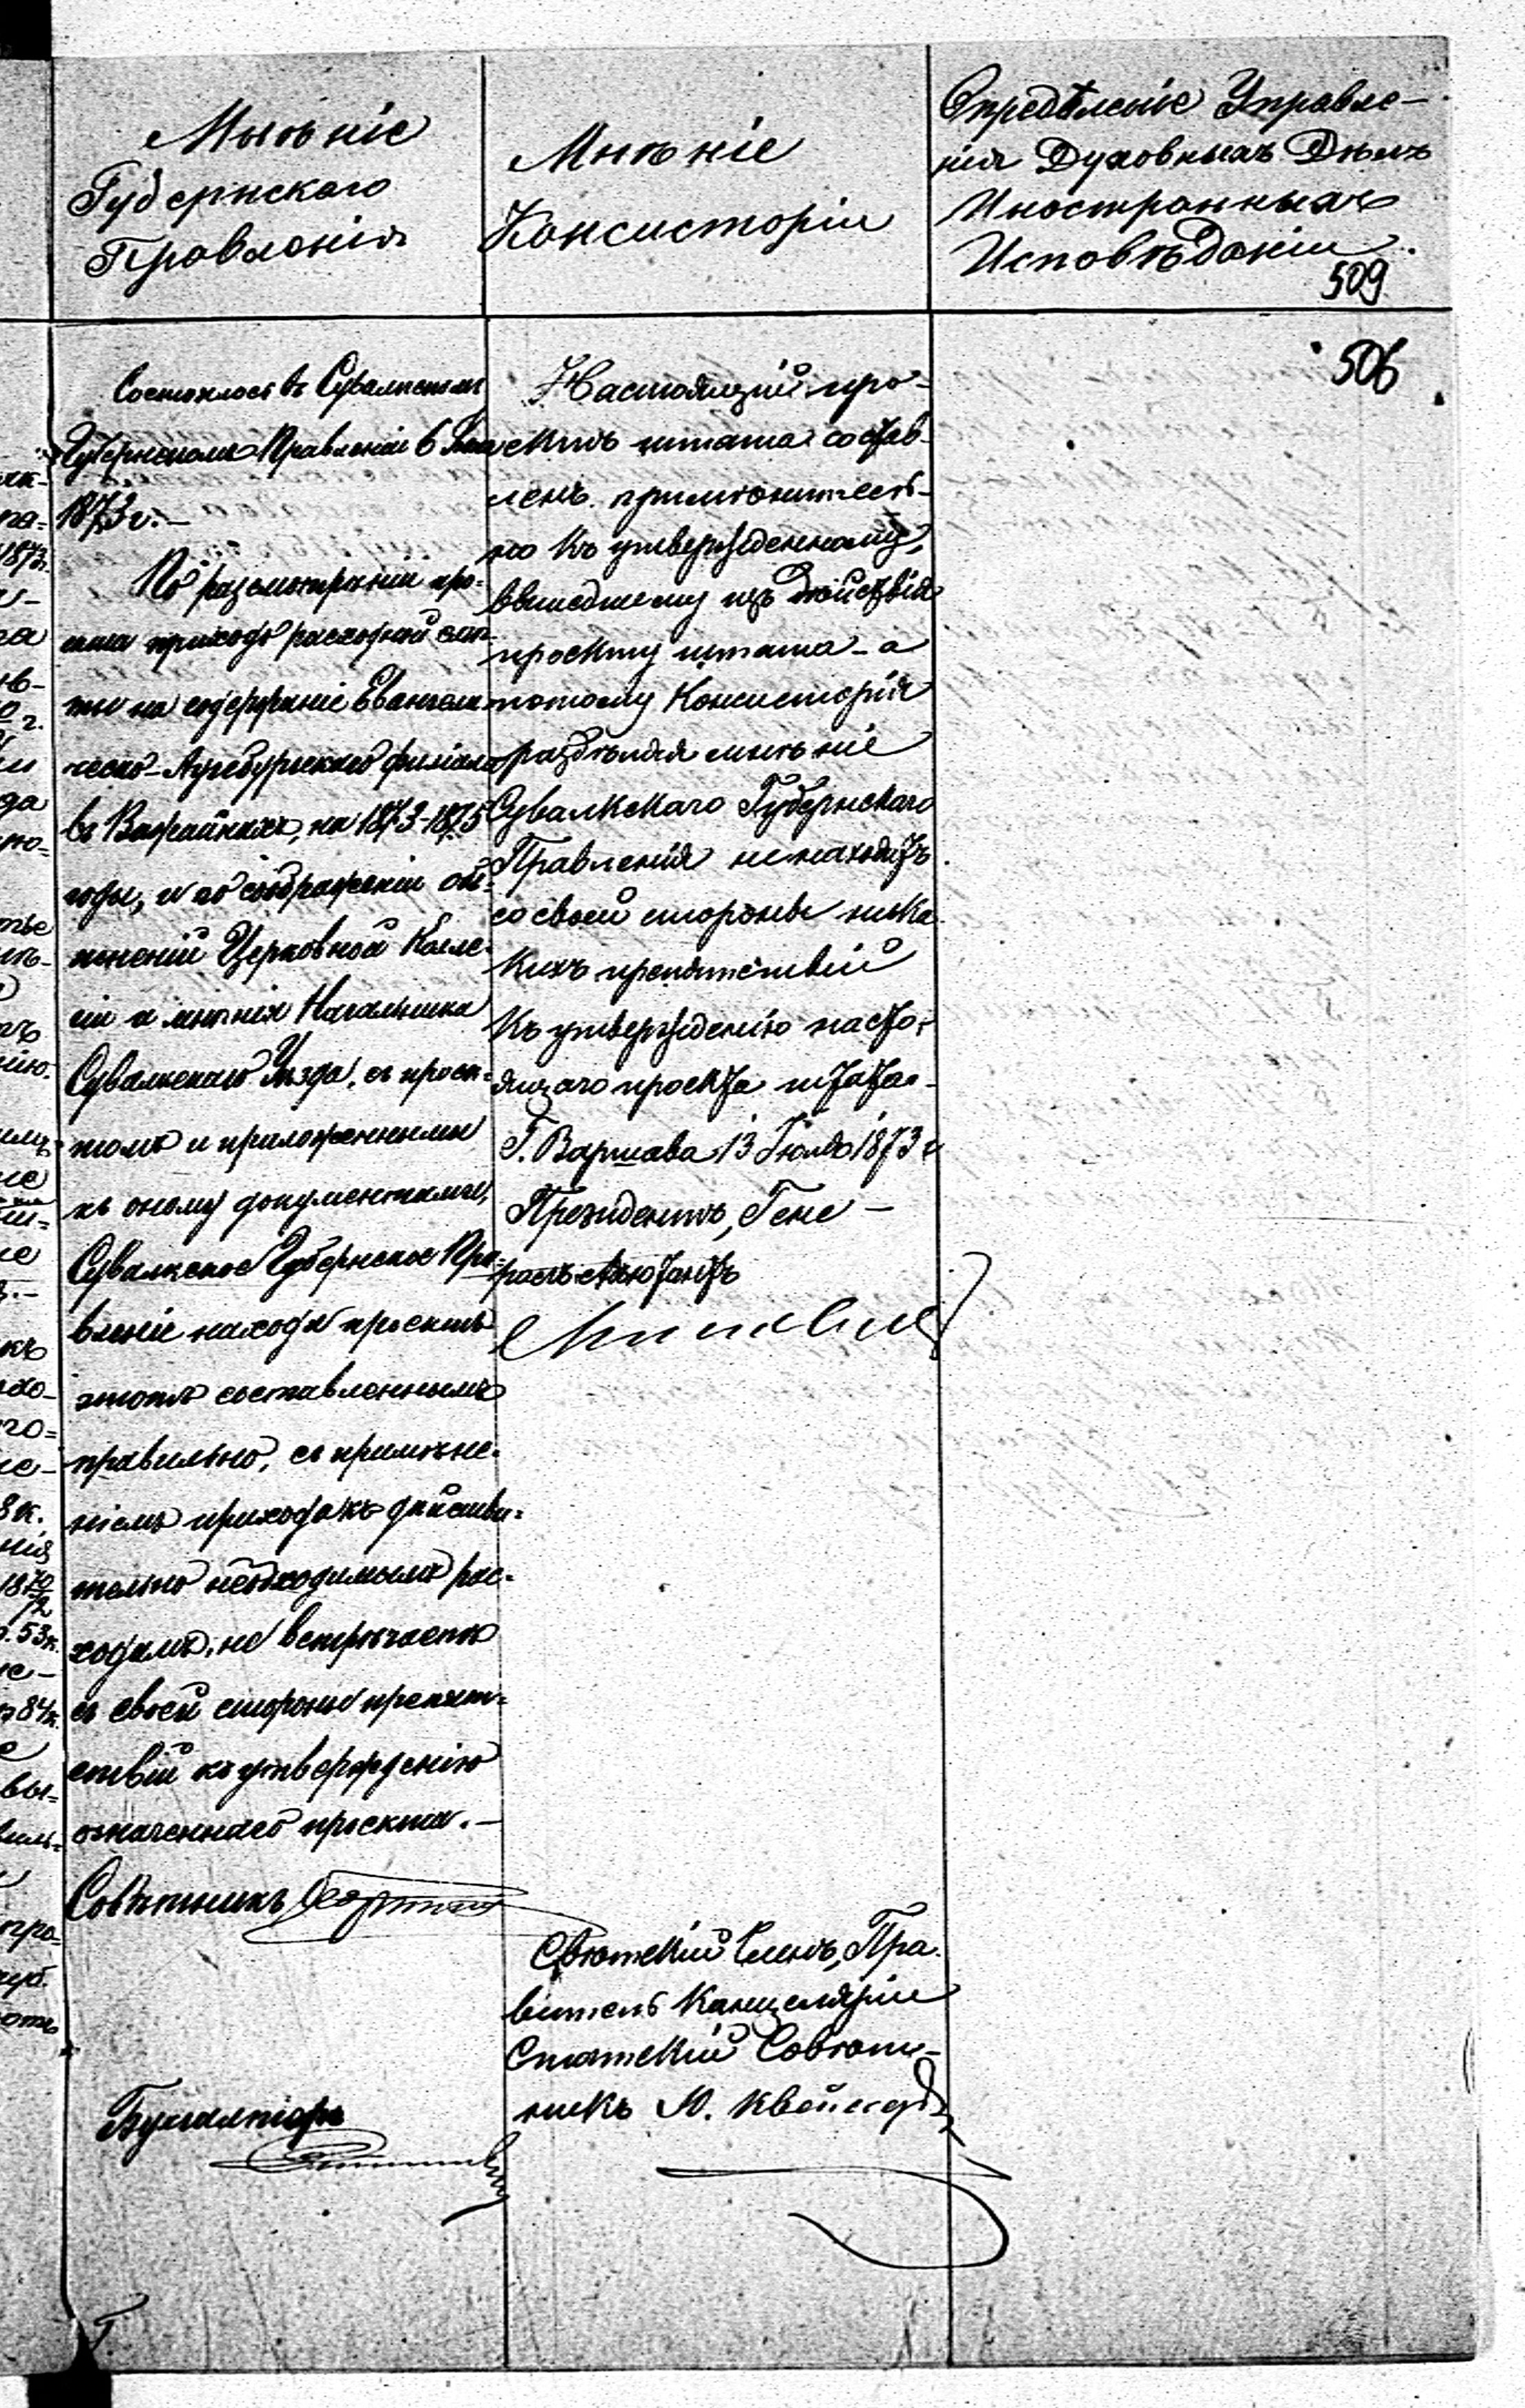 Мнѣніе
Губернскаго
Правленія
Мнѣніе
Консисторіи
Опредѣленіе Управле-
нія Духовныхъ Дѣлъ
Иностранныхъ
Исповѣданій.
509
506
Состоялось въ Сувалкскомъ
Губернскомъ Правленіи 6
1873 г.-
По разсмотрѣніи про-
екта приходо расходной смѣ-
ты на содержаніе Евангели-
ческо-Аугсбургскаго филіала
въ Вижайнахъ, на 1873-1875
годы, и по соображеніи объ-
ясненій Церковной Колле-
гіи и мнѣнія Начальника
Сувалкскаго Уѣзда, съ проек-
томъ и приложенными
къ оному документами,
Сувалкское Губернское Пра-
вленіе находя проектъ
этотъ составленнымъ
правильно, съ примѣне-
ніемъ прихода къ дѣйстви-
тельно необходимымъ рас-
ходамъ, не встрѣчаетъ
съ своей стороны препят-
ствій къ утвержденію
означеннаго проекта.-
Совѣтникъ
Бухгалтеръ
Настоящій про-
ектъ штата состав-
ленъ примѣнитель-
но къ утвержденному,
вышедшему изъ дѣйствія
проекту штата - а
потому Консисторія
раздѣляя мнѣніе
Сувалкскаго Губернскаго
Правленія не находитъ
со своей стороны ника-
кихъ препятствій
къ утвержденію насто-
ящаго проекта штата.-
Г. Варшава 13 Іюля 1873 г
Президентъ, Гене-
ралъ-Адъютантъ
Свѣтскій Членъ, Пра-
витель Канцеляріи
Статскій Совѣт-
никъ Ю.